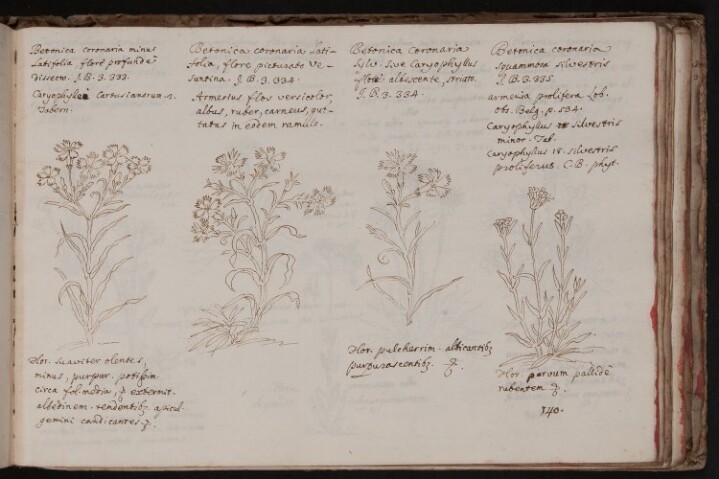 Betonica coronaria minus
Latifolia, flore profunde
dissecto. J.B. 3. 333.
Caryophyllei Cartusianorum
Tabern.
Betonica coronaria Lati-
folia, flore picturato Ve-
santina. J.B. 3. 334.
Armerius flos versicolor,
albus, ruber, carneus, gut-
tatus in eodem ramulis.
Betonica Coronaria
Sylv. sive Caryophyllus
flore albescente, striato.
J.B. 3. 334.
Betonica coronaria
squammosa silvestris
J.B. 3. 335.
armeria prolifera Lob.
obs. Belg. p. 534.
Caryophyllus silvestris
minor. Tab.
Caryophyllus silvestris
proliferus. C.B. phyt.
Flor. suaviter olentes,
minus, purpur. potissim.
circa fol. media,
albedinem tendentibz apicul.
gemini candicantes.
Flor. pulcherrim. albicantibz
purpurascentibz.
Flor parvum pallide
rubentem
140.